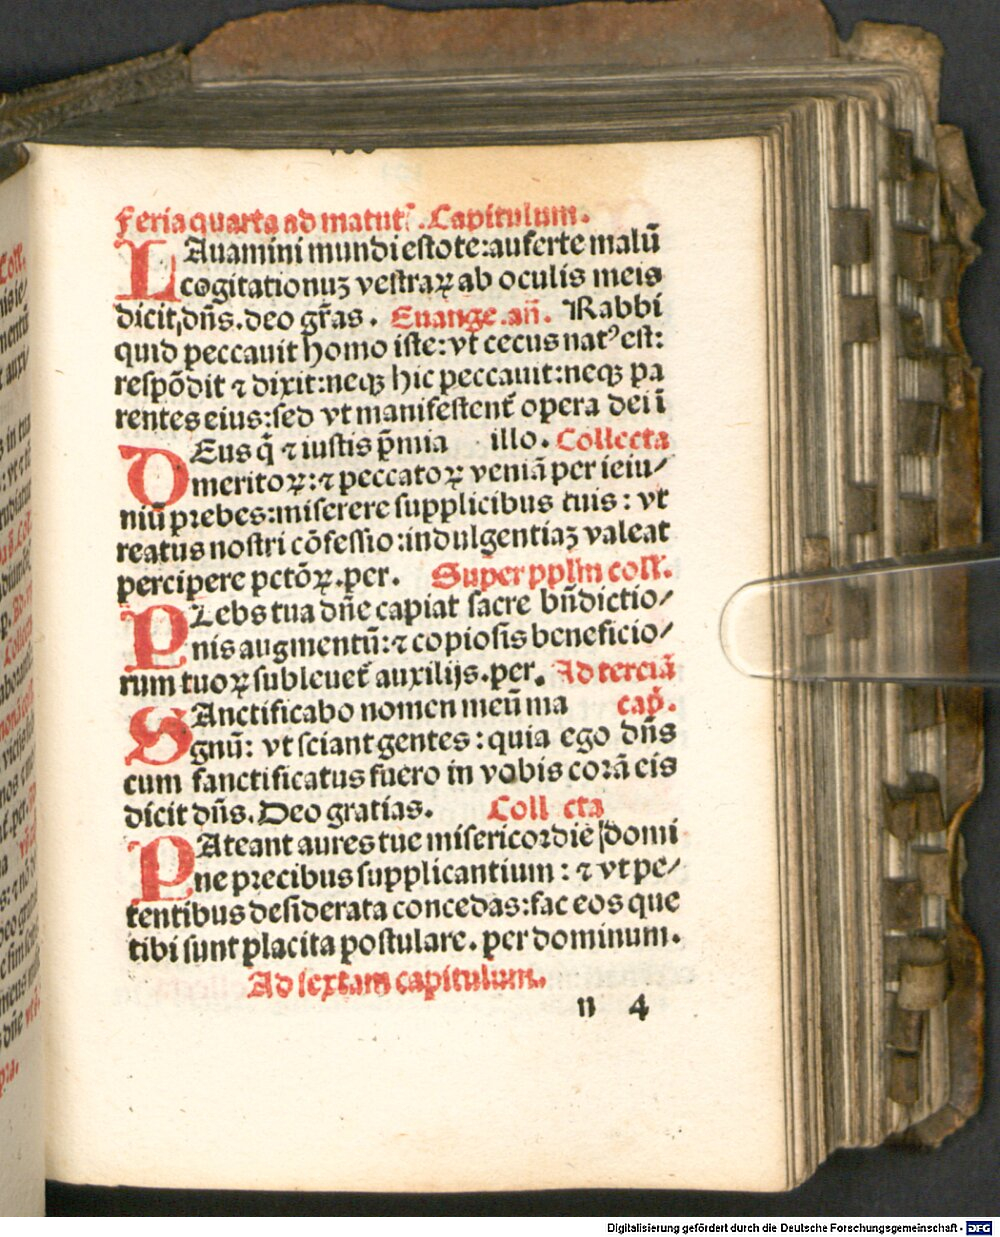 Feria quarta ad matut᷒. Capitulum.
LAuamini mundi estote:auferte malū
cogitationuꝫ vestraꝝ ab oculis meis
dicit dñs.deo gr̄as. Euange.añ. Rabbi
quid peccauit homo iste:vt cecus natꝰ est:
respōdit ⁊ dixit:neqꝫ hic peccauit:neqꝫ pa
rentes eius:sed vt manifestent᷑ opera dei ī
DEus q̄ ⁊ iustis p̄mia illo. Collecta
meritoꝝ:⁊ peccatoꝝ veniā per ieiu/
niū prebes:miserere supplicibus tuis: vt
reatus nostri cōfessio:indulgentiaꝫ valeat
percipere pctōꝝ.per. Super pplm̄ coll'.
PLebs tua dn̄e capiat sacre bn̄dictio/
nis augmentū:⁊ copiosis beneficio/
rum tuoꝝ subleuet᷑ auxilijs.per. Ad terciā
SAnctificabo nomen meū ma cap̄.
gnū: vt sciant gentes: quia ego dñs
cum sanctificatus fuero in vobis corā eis
dicit dñs.Deo gratias. Coll cta
PAteant aures tue misericordie domi
ne precibus supplicantium: ⁊ vt pe/
tentibus desiderata concedas:fac eos que
tibi sunt placita postulare. per dominum.
Ad sextam capitulum.
n 4
Digitalisierung gefördert durch die Deutsche Forschungsgemeinschaft - DFG